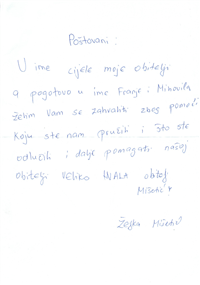 Poštovani:
U ime cijele moje obitelji
a pogotovo u ime Franje i Mihovila
želim vam se zahvaliti zbog pomoći
koju ste nam pružili i što ste
odlučili i dalje pomagati našoj
obitelji VELIKO HVALA obitelj
Mišetić
Željka Mišetić